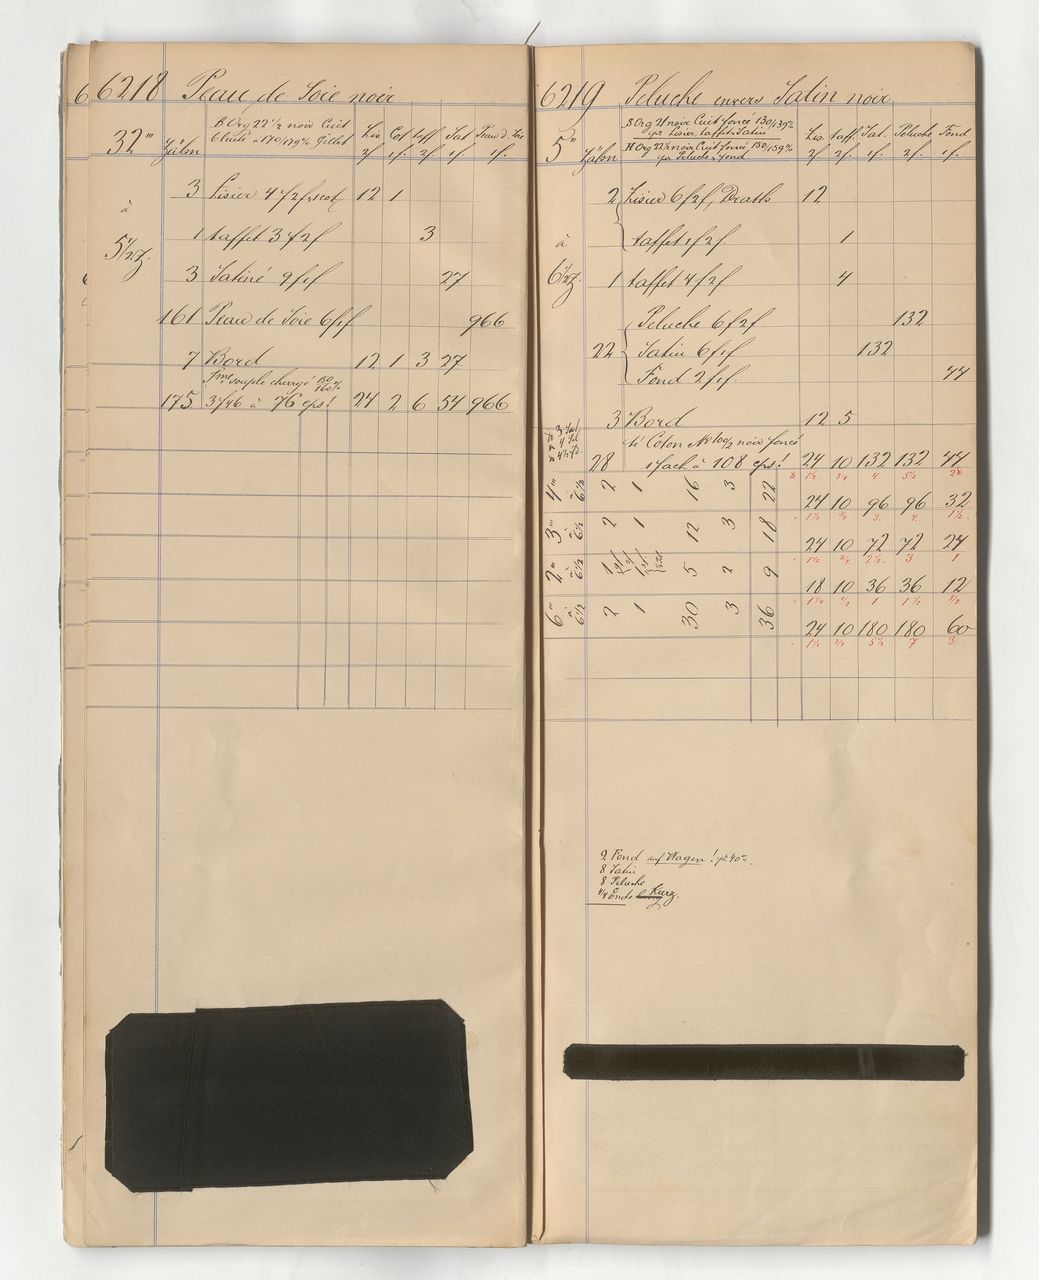 6218 Peau de Soie noir
32''' Zähn B Org 22 1/2 noir Cuit Lis Cot taff Sat Peau d. Soie
à 170/179% Gillet 2f 1f. 2f 1f. 1f.
3 Lisier 4f2f 12 1
à
1 taffet 3f2f 3
5 1/2 Z.
3 Satiné 9f1f 27
161 Peau de Soie 6f1f 966
7 Bord 12 1 3 27
souple chargé 150/160%
175 3/46 à 76 cps! 24 2 6 54 966
6219 Peluche envers Satin noir
5''' Zähn B Org 21 noir Cuit foncé 130/139% Lis. taff Sat. Peluche Fond
pr Lisier. taffet & Satin 2f 2f. 1f. 2f. 1f.
H Org 22 1/2 noir Cuit foncé 150/159%
pr Peluche & fond
2 Lisier 6f2f, Draths 12
à taffet 1f2f 1
6 1/2 Z. 1 taffet 4f2f 4
Peluche 6f2f 132
22 Satin 6f1f 132
Fond 2f1f. 44
3 Bord 12 5
tr Coton No 100/2 noir foncé
28 1fach à 108 cps! 24 10 132 132 44
1 1/2 3/4 4 5 1/2 2
4''' à 6 1/2 2 1 16 3 22 24 10 96 96 32
1 1/2 3/4 3. 4. 1 1/2.
3''' à 6 1/2 2 1 12 3 18 24 10 72 72 24
1 1/2. 3/4. 2 1/2. 3. 1
2''' à 6 1/2 1 1 5 2 9 18 10 36 36 12
1 1/4 1/2 1 1 1/2 3/4
6''' à 6 1/2 2 1 30 3 36 24 10 180 180 60
1 1/2 3/4 5 1/2 7 3
9 Fond auf Wagen! pr 40
8 Satin
8 Peluche
4/4 Ende Kurz.